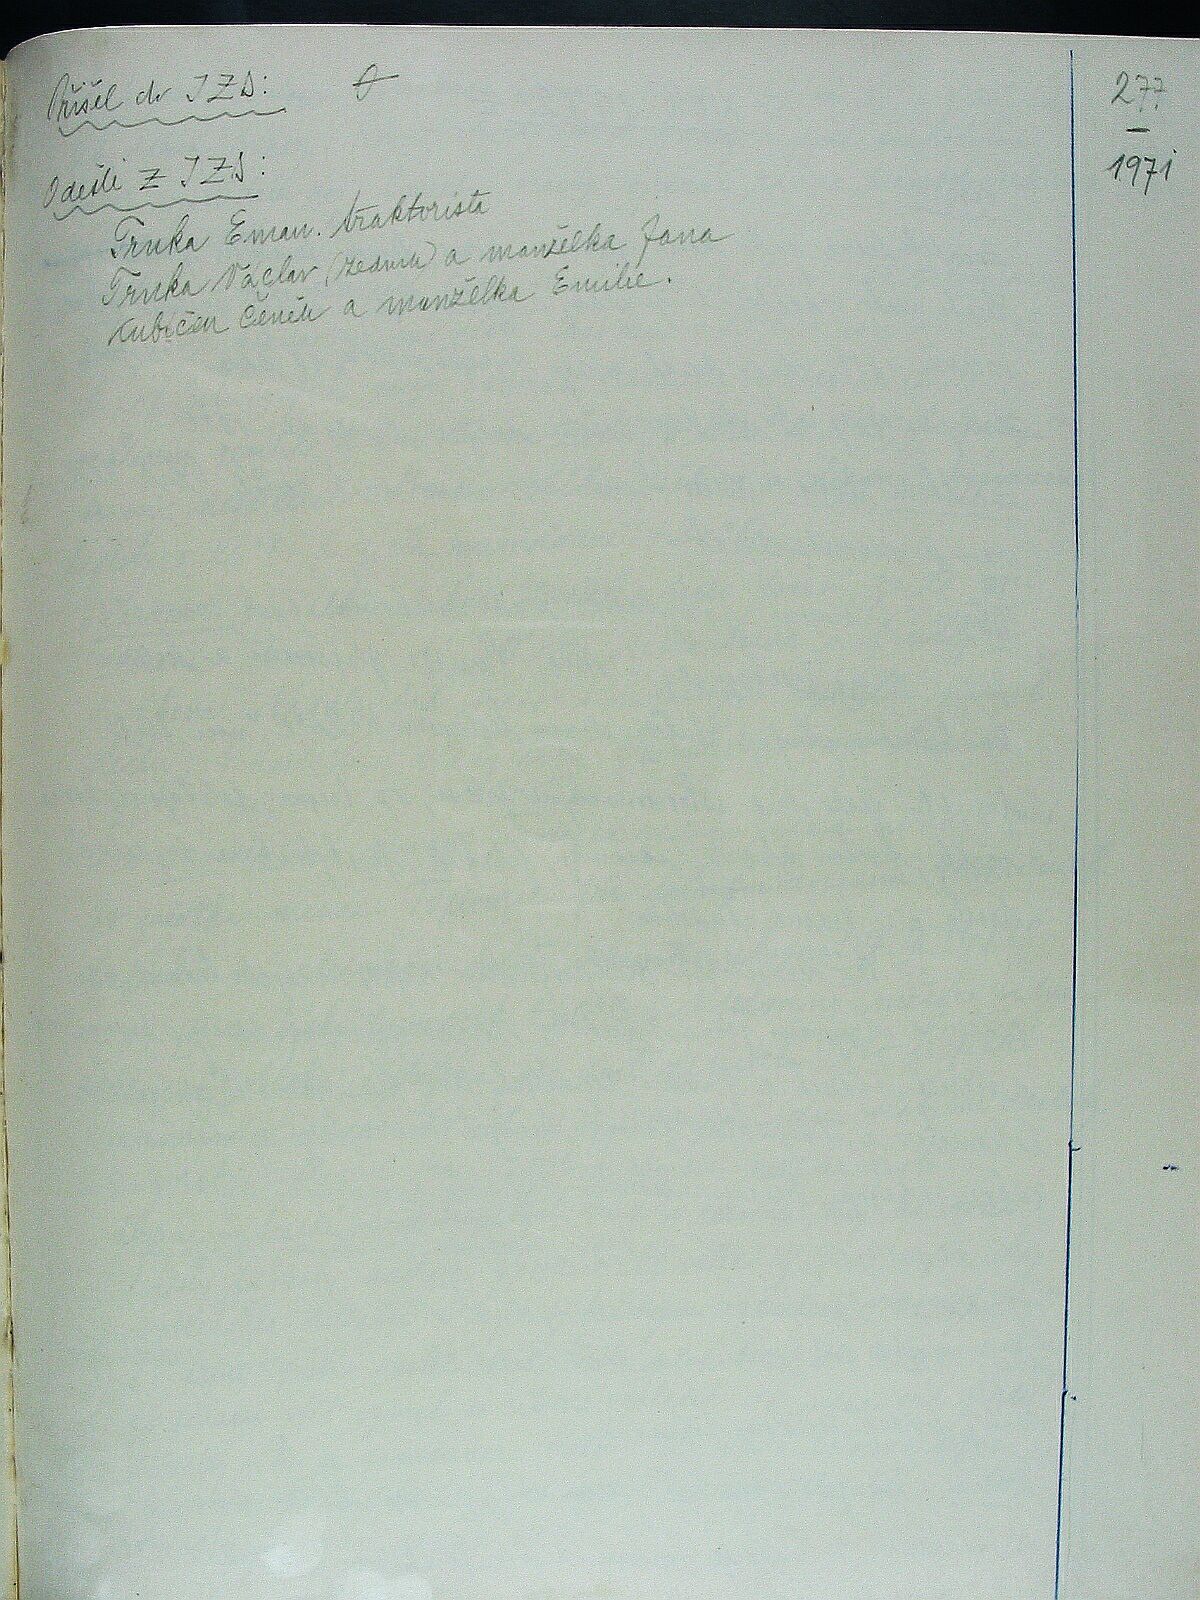 Přišel do JZD: 0
Odešli z JZD:
Trnka Eman. traktorista
Trnka Václav (zedník) a manželka Jana
Kubíček Čeněk a manželka Emilie.
277
1971